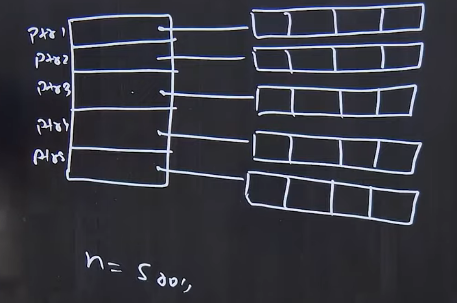 ptr1
ptr2
ptr3
ptr4
ptr5
n = 500;